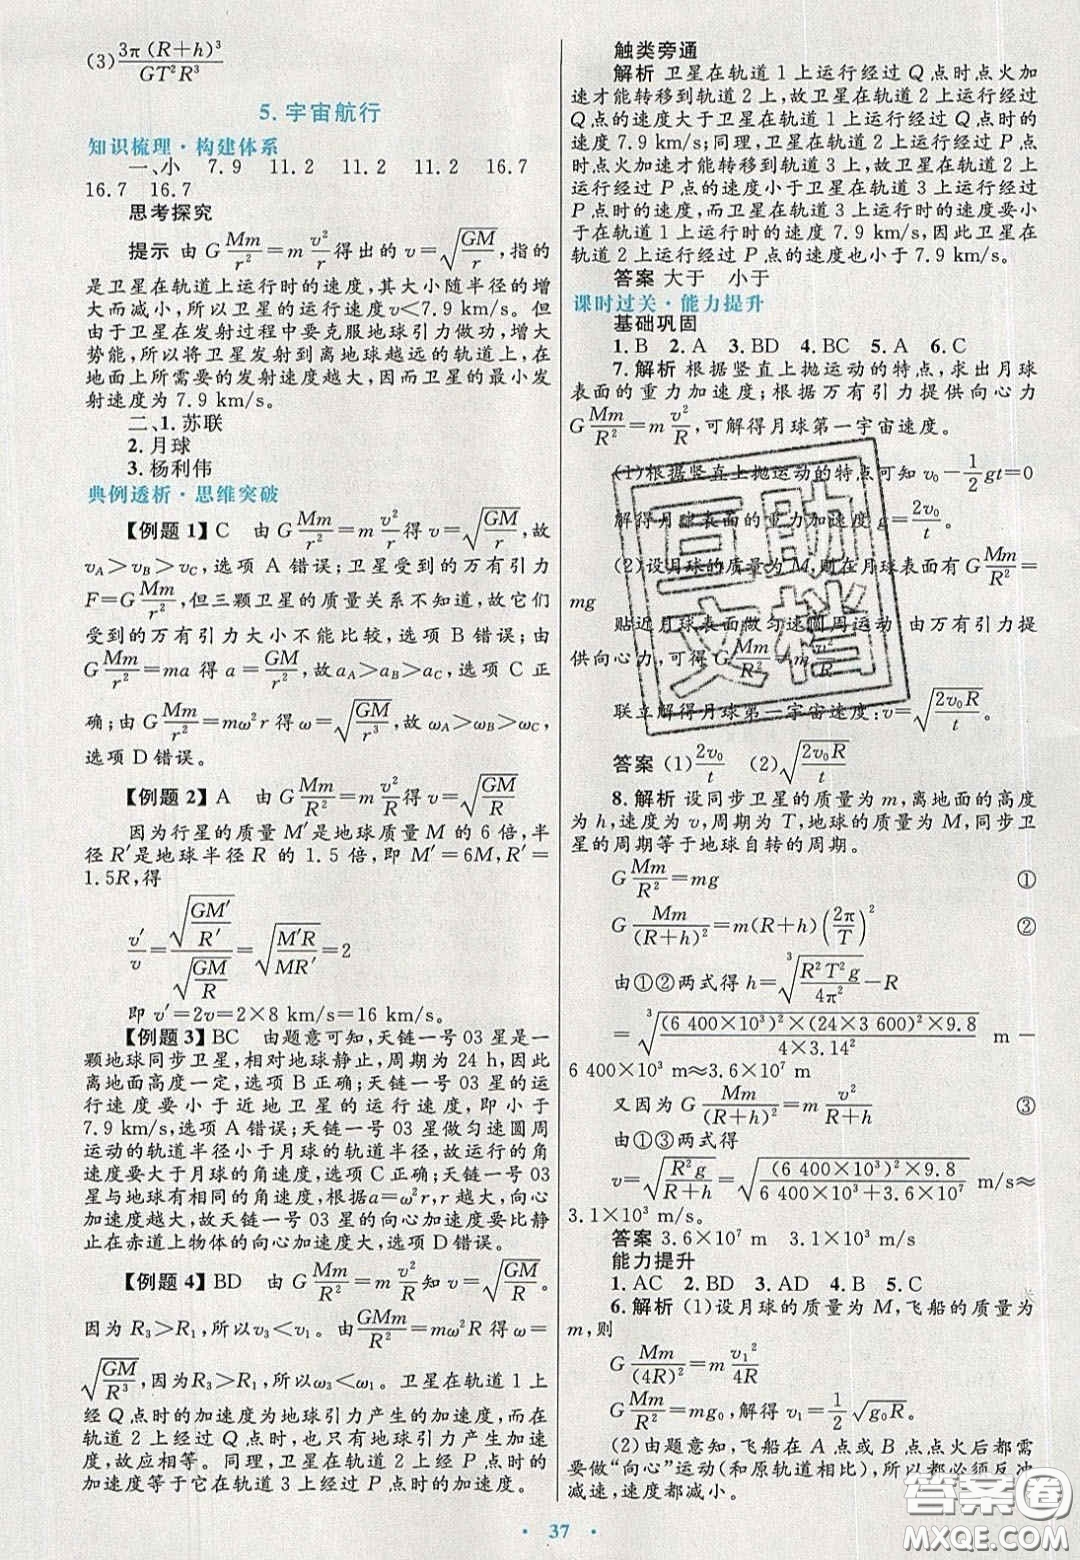 (3) \frac{3π(R+h)^3}{GT^2R^3}
5. 宇宙航行
知识梳理·构建体系
一、小 7.9 11.2 11.2 11.2 16.7
16.7 16.7
思考探究
提示 由 G\frac{Mm}{r^2}=m\frac{v^2}{r}得出的 v=\sqrt{\frac{GM}{r}},指的
是卫星在轨道上运行时的速度,其大小随半径的增大
而减小,所以卫星的运行速度v<7.9 km/s。但
由于卫星在发射过程中要克服地球引力做功,增大
势能,所以将卫星发射到离地球越远的轨道上,在
地面上所需要的发射速度越大,因而卫星的最小发
射速度为 7.9 km/s。
二、1. 苏联
2. 月球
3. 杨利伟
典例透析·思维突破
【例题 1】C 由 G\frac{Mm}{r^2}=m\frac{v^2}{r}得 v=\sqrt{\frac{GM}{r}},故
v_A>v_B>v_C,选项 A 错误;卫星受到的万有引力
F=G\frac{Mm}{r^2},但三颗卫星的质量关系不知道,故它们
受到的万有引力大小不能比较,选项 B 错误;由
G\frac{Mm}{r^2}=ma 得 a=\frac{GM}{r^2},故 a_A>a_B>a_C,选项 C 正
确;由 G\frac{Mm}{r^2}=mω^2r 得 ω=\sqrt{\frac{GM}{r^3}},故 ω_A>ω_B>ω_C,
选项 D 错误。
【例题 2】A 由 G\frac{Mm}{R^2}=m\frac{v^2}{R}得 v=\sqrt{\frac{GM}{R}}
因为行星的质量 M′是地球质量 M 的 6 倍,半
径 R′是地球半径 R 的 1.5 倍,即 M′=6M,R′=
1.5R,得
\frac{v′}{v}=\frac{\sqrt{\frac{GM′}{R′}}}{\sqrt{\frac{GM}{R}}}=\sqrt{\frac{M′R}{MR′}}=2
即 v′=2v=2×8 km/s=16 km/s。
【例题 3】BC 由题意可知,天链一号 03 星是一
颗地球同步卫星,相对地球静止,周期为 24 h,因此
离地面高度一定,选项 B 正确;天链一号 03 星的运
行速度要小于近地卫星的运行速度,即小于
7.9 km/s,选项 A 错误;天链一号 03 星做匀速圆周
运动的轨道半径小于月球的轨道半径,故运行的角
速度要大于月球的角速度,选项 C 正确;天链一号 03
星与地球有相同的角速度,根据a=ω^2r,r越大,向心
加速度越大,故天链一号 03 星的向心加速度要比静
止在赤道上物体的向心加速度大,选项 D 错误。
【例题 4】BD 由 G\frac{Mm}{R^2}=m\frac{v^2}{R}知 v=\sqrt{\frac{GM}{R}}。
因为 R_3>R_1,所以v_3<v_1。由\frac{GMm}{R^2}=mω^2R 得 ω=
\sqrt{\frac{GM}{R^3}},因为R_3>R_1,所以ω_3<ω_1。卫星在轨道 1 上
经 Q 点时的加速度为地球引力产生的加速度,而在
轨道 2 上经过 Q 点时,也只有地球引力产生加速
度,故应相等。同理,卫星在轨道 2 上经 P 点时的
加速度等于它在轨道 3 上经过 P 点时的加速度。
触类旁通
解析 卫星在轨道 1 上运行经过 Q 点时点火加
速才能转移到轨道 2 上,故卫星在轨道 2 上运行经过
Q 点的速度大于卫星在轨道 1 上运行经过 Q 点的速
度 7.9 km/s;同理,卫星在轨道 2 上运行经过 P 点
时点火加速才能转移到轨道 3 上,故卫星在轨道 2
上运行经过 P 点的速度小于卫星在轨道 3 上运行经过
P 点时的速度,而卫星在轨道 3 上运行的速度要小
于在轨道 1 上运行时的速度 7.9 km/s,因此卫星在
轨道 2 上运行经过 P 点的速度也小于 7.9 km/s。
答案 大于 小于
课时过关·能力提升
基础巩固
1. B 2. A 3. BD 4. BC 5. A 6. C
7. 解析 根据竖直上抛运动的特点,求出月球
表面的重力加速度;根据万有引力提供向心力
G\frac{Mm}{R^2}=m\frac{v^2}{R},可解得月球第一宇宙速度。
(1)根据竖直上抛运动的特点可知 v_0-\frac{1}{2}gt=0
解得月球表面的重力加速度 g=\frac{2v_0}{t}。
(2)设月球的质量为M,则在月球表面有 G\frac{Mm}{R^2}=
mg
贴近月球表面做匀速圆周运动,由万有引力提
供向心力,可得 G\frac{Mm}{R^2}=m\frac{v^2}{R}
联立解得月球第一宇宙速度:v=\sqrt{\frac{2v_0R}{t}}。
答案 (1)\frac{2v_0}{t} (2)\sqrt{\frac{2v_0R}{t}}
8. 解析 设同步卫星的质量为 m,离地面的高度
为 h,速度为 v,周期为 T,地球的质量为 M,同步卫
星的周期等于地球自转的周期。
G\frac{Mm}{R^2}=mg ①
G\frac{Mm}{(R+h)^2}=m(R+h)(\frac{2π}{T})^2 ②
由①②两式得 h=\sqrt[3]{\frac{R^2T^2g}{4π^2}}-R
=\sqrt[3]{\frac{(6 400×10^3)^2×(24×3 600)^2×9.8}{4×3.14^2}} m -
6 400×10^3 m≈3.6×10^7 m
又因为 G\frac{Mm}{(R+h)^2}=m\frac{v^2}{R+h} ③
由①③两式得
v=\sqrt{\frac{R^2g}{R+h}}=\sqrt{\frac{(6 400×10^3)^2×9.8}{6 400×10^3+3.6×10^7}} m/s≈
3.1×10^3 m/s。
答案 3.6×10^7 m 3.1×10^3 m/s
能力提升
1. AC 2. BD 3. AD 4. B 5. C
6. 解析 (1)设月球的质量为 M,飞船的质量为
m,则
G\frac{Mm}{(4R)^2}=m\frac{v_1^2}{4R}
G\frac{Mm}{R^2}=mg_0,解得 v_1=\frac{1}{2}\sqrt{g_0R}。
(2)由题意知,飞船在 A 点或 B 点点火后都需
要做“向心”运动(和原轨道相比),所以都必须反冲
减速,速度都减小。
37
互助
文档
答案圈
MXQE.COM